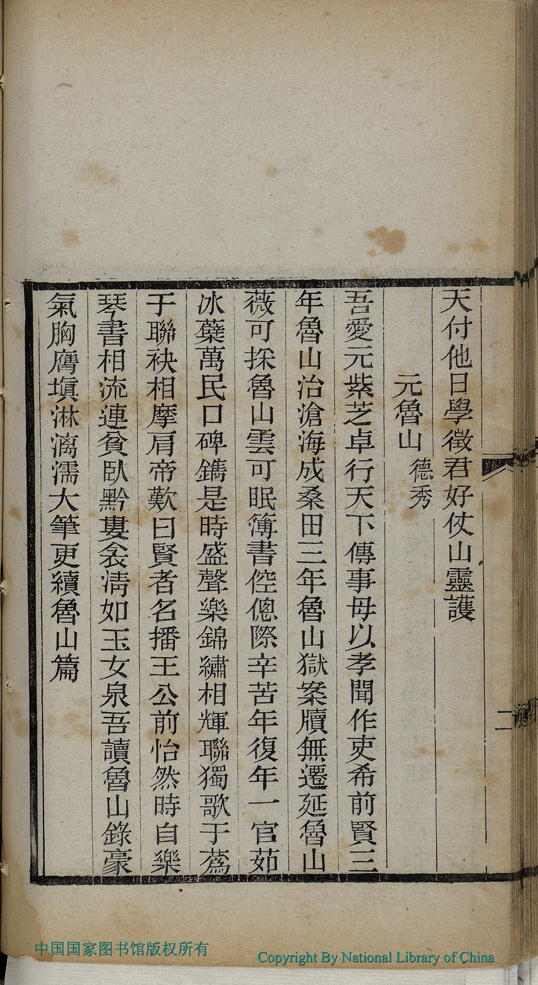 天付他日學徵君好仗山靈護
元魯山 德秀
吾愛元紫芝卓行天下傳事母以孝聞作吏希前賢三
年魯山治滄海成桑田三年魯山獄案牘無遷延魯山
薇可採魯山雲可眠簿書倥傯際辛苦年復年一官茹
冰蘗萬民口碑鐫是時盛聲樂錦繡相輝聯獨歌于蔿
于聯袂相摩肩帝歎曰賢者名播王公前怡然時自樂
琴書相流連貧臥黔婁衾清如玉女泉吾讀魯山錄豪
氣胸膺塡淋漓濡大筆更續魯山篇
二
中国国家图书馆版权所有
Copyright By National Library of China